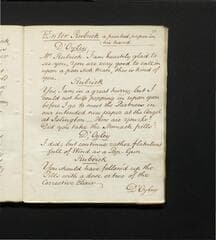 Enter Rubrick a printed paper in
his hand
D. Ogley
Mr Rubrick I am heartily glad to
see you, You are very good to call in
upon a poor sick man, this is kind of
you.
Rubrick
Yes, I am in a great hurry but I
could not help popping in upon you
before I go to meet the Partners in
our intended new paper at the Angel
at Islington — How are you eh?
Did you take the Stomach pills
D. Ogley
I did; but continue rather flatulent
full of Wind as a Pop Gun
Rubrick
You should have followed up the
Pills with a dose or two of the
Corrective
D. Ogley